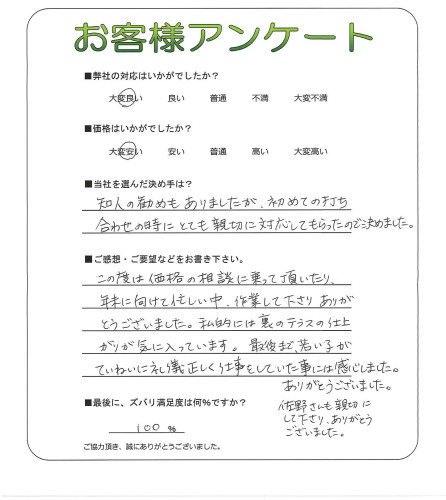 お客様アンケート
■弊社の対応はいかがでしたか？
大変良い 良い 普通 不満 大変不満
■価格はいかがでしたか？
大変安い 安い 普通 高い 大変高い
■当社を選んだ決め手は？
知人の勧めもありましたが、初めての打ち
合わせの時にとても親切に対応してもらったので決めました。
■ご感想・ご要望などをお書き下さい。
この度は価格の相談に乗って頂いたり、
年末に向けて忙しい中、作業して下さりありが
とうございました。私的には裏のテラスの仕上
がりが気に入っています。最後まで、若い子が
ていねいに礼儀正しく仕事をしていた事には感心しました。
ありがとうございました。
佐野さんも親切に
して下さり、ありがとう
ございました。
■最後に、ズバリ満足度は何%ですか？
100 %
ご協力頂き、誠にありがとうございました。